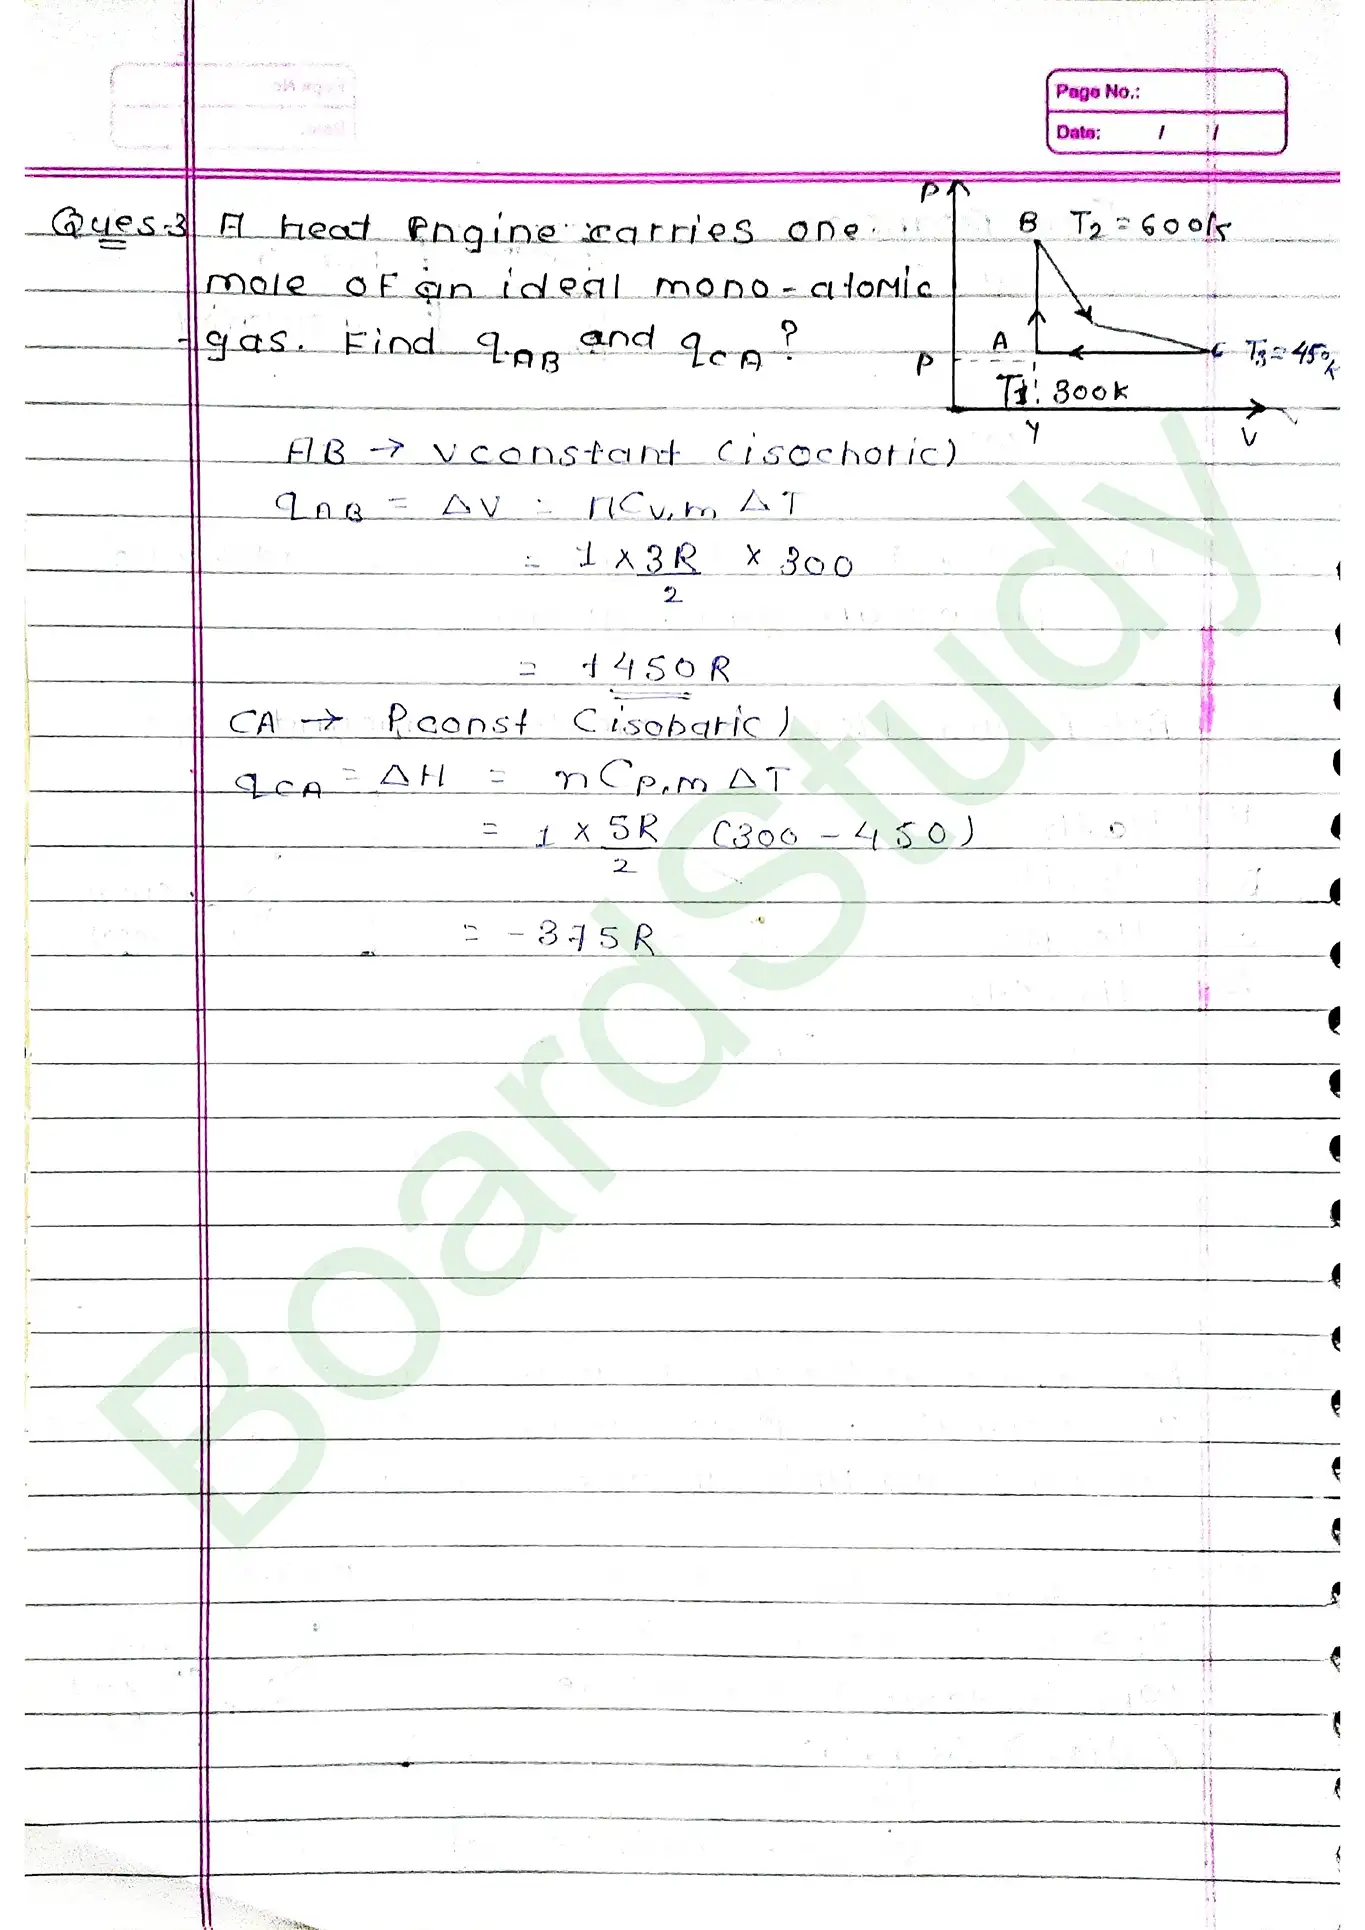 Page No.:
Date: / /
Ques-3 A heat Engine carries one
mole of an ideal mono-atomic
gas. Find qAB and qCA ?
P
B T2 = 600K
A
C T3 = 450K
P
T1: 300K
V
V
AB → V constant (isochoric)
qAB = ΔV = nCv,m ΔT
= 1 × 3R/2 × 300
= +450R
CA → P const (isobaric)
qCA = ΔH = nCp,m ΔT
= 1 × 5R/2 (300 - 450)
= -375R
BoardStudy